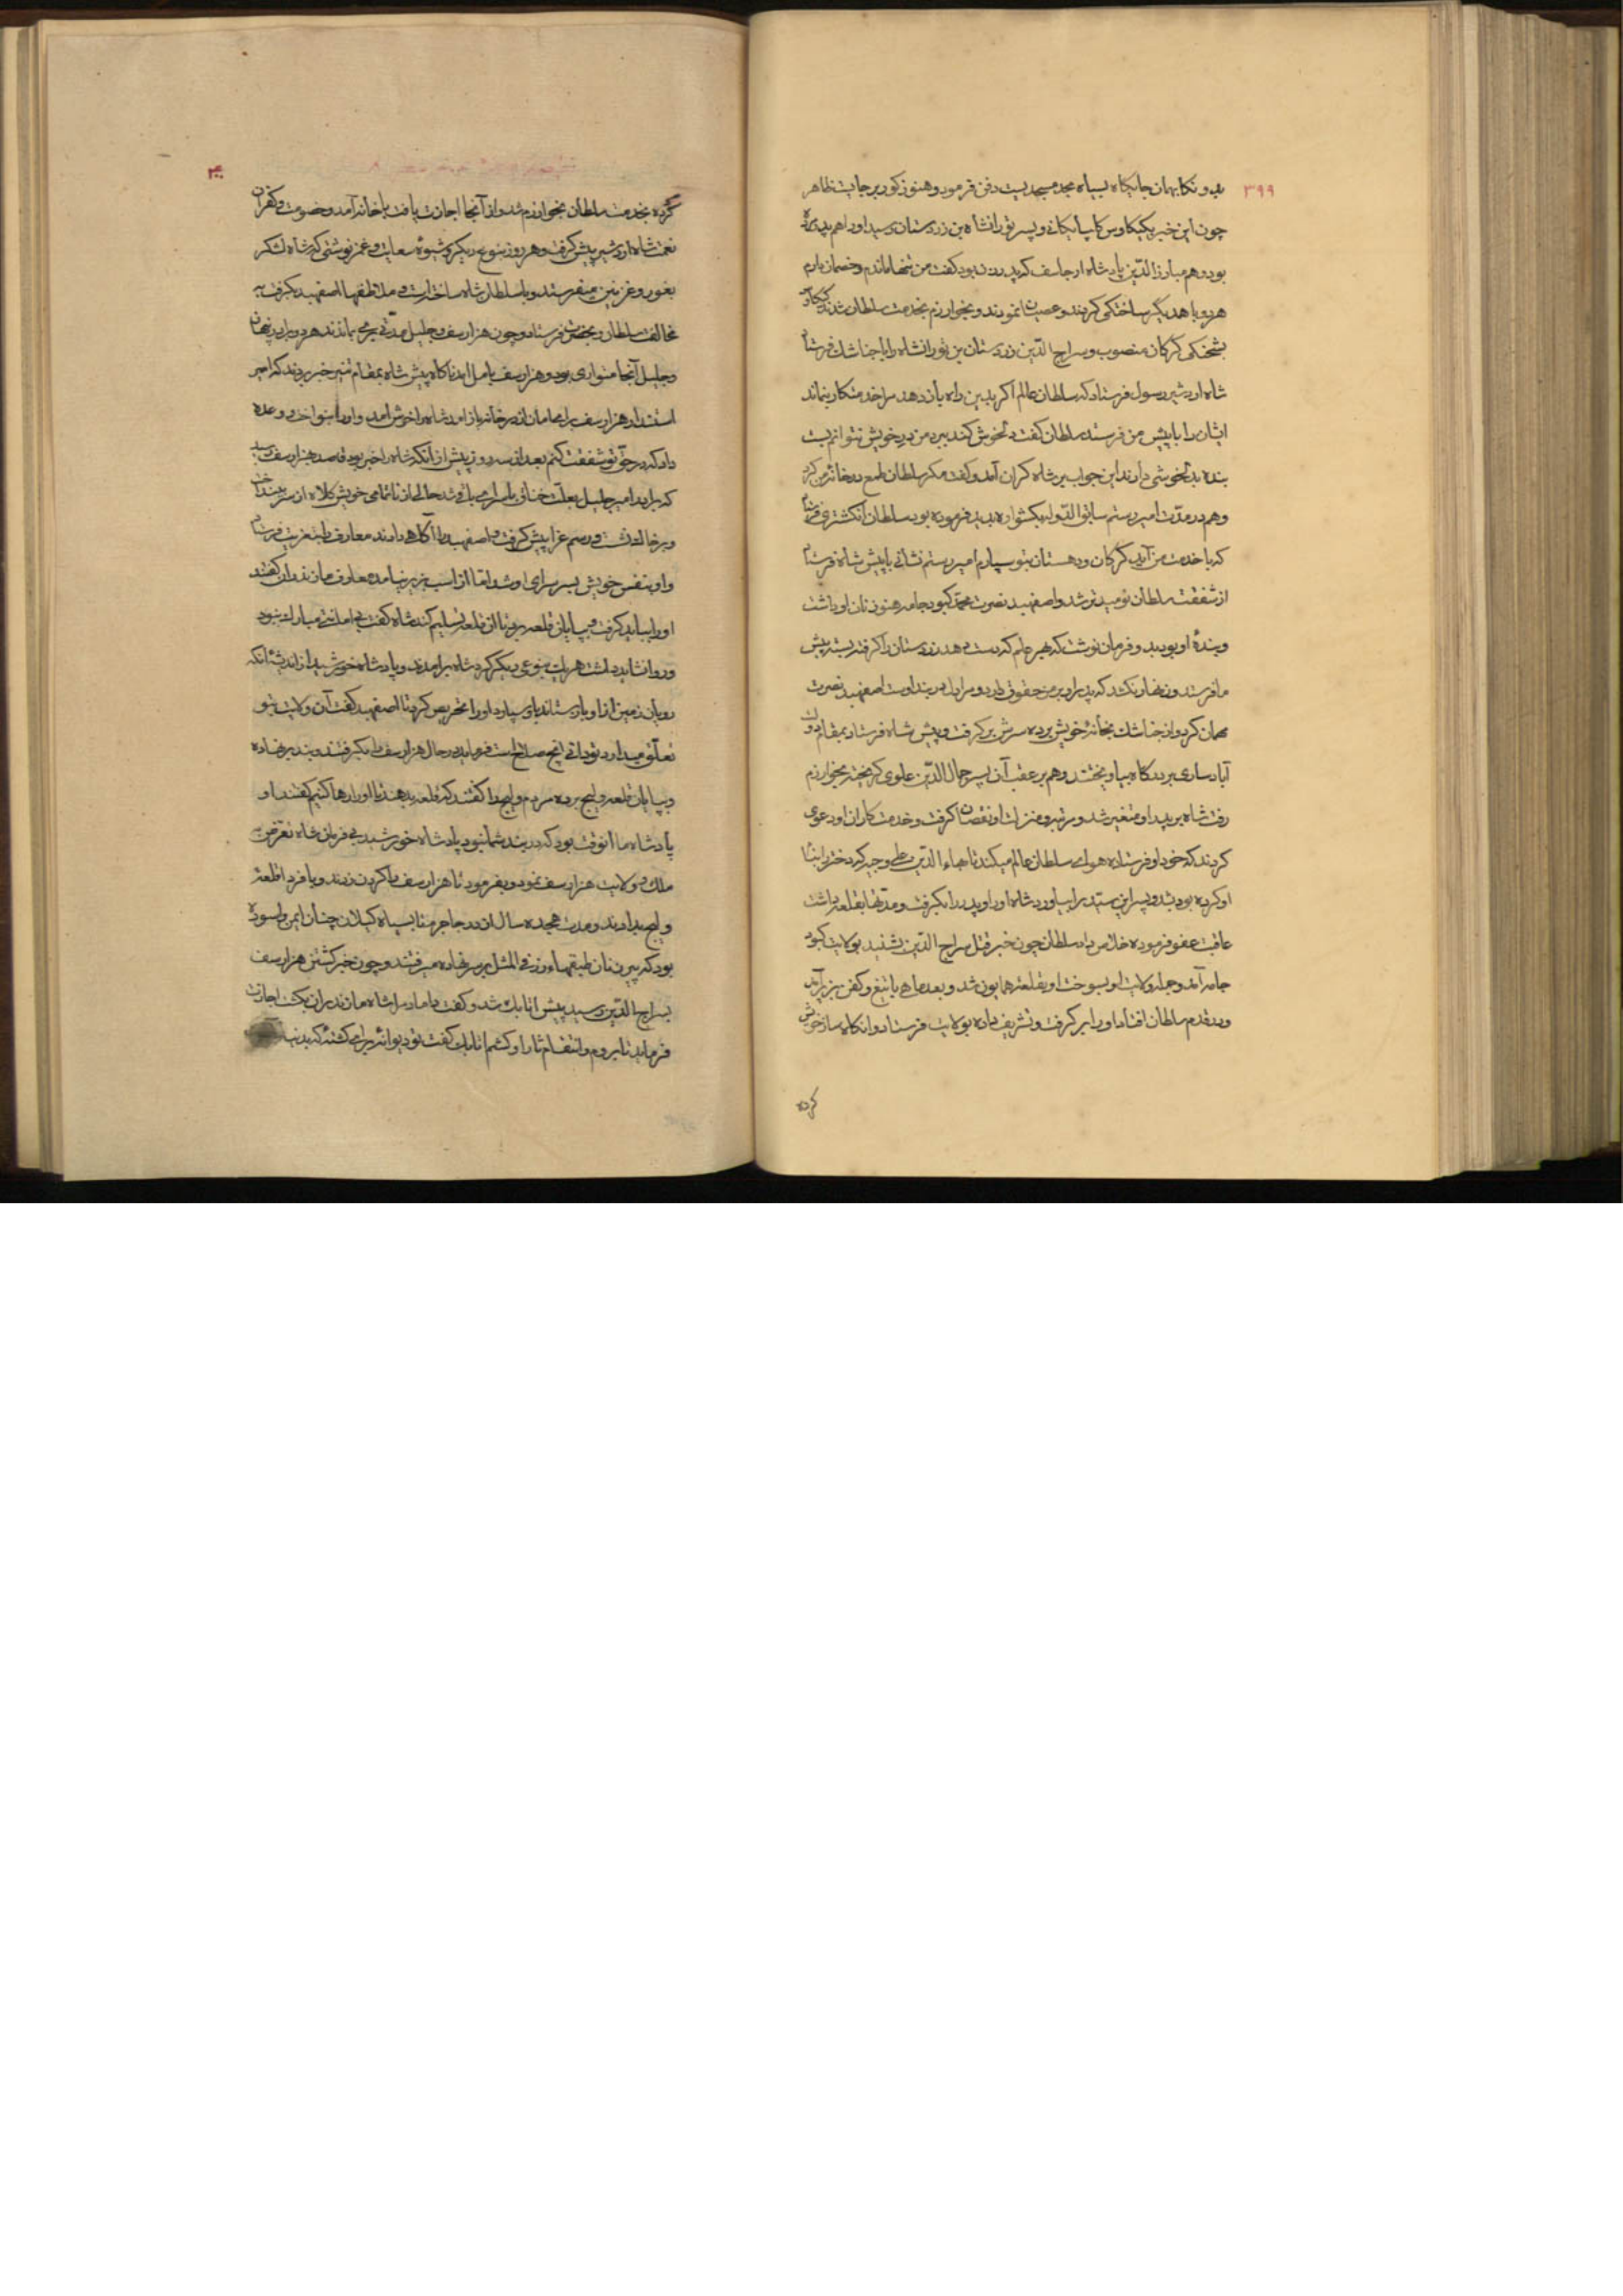 ۳۹۹
بدو نکا بهمان جایگاه بسیاه مجد مسجدیست دفن فرمود و هنوز کور برجایست ظاهر
چون این خبر بکیکاوس کاپایکانی و پسر تورانشاه بن زردستان رسید او را هم پدر مرده
بود و هم مبارزالدّین پادشاه ارجاسف که پدر زن بود کفت من تنها ماندم و خصمان دارم
هر دو با هدیگر ساختگی کردند و عصیان نمودند و بخوارزم بخدمت سلطان شدند کیکاوس
بشحنکی کرکان منصوب و سراج الدّین زردستان بن تورانشاه را با جناشک فرستاد
شاه اردشیر رسول فرستاد که سلطان عالم اکر بدین راه باز دهد مرا خدمتکار نماند
ایشان را با پیش من فرستد سلطان کفت دلخوش کند بر در خویش نتوانم بست
بنده بدلخوشی دارند این جواب بر شاه کران آمد و کفت مکر سلطان طمع در خانهٔ من کرد
و هم در مدّت امیر رستم سابق الدّوله بیکشواره بدید فرموده بود سلطان انکشتری فرستاد
که با خدمت من آید کرکان و دهستان بتو سپارم امیر رستم نشانی با پیش شاه فرستاد
از شفقت سلطان نومیدتر شد و اصفهبد نصرت محمّد کبودجامه هنوز نان او داشت
و بندهٔ او بود بدو فرمان نوشت که بهر جام که دست دهد زردستان را کرفته بسته پیش
ما فرستد و زنهار نکشد که پدر او بر من حقوق دارد و مرا دل در بند اوست اصفهبد نصرت
مهمان کرد و از جناشک بخانهٔ خویش برده سرش برکرفت و پیش شاه فرستاد بمقام دولت
آباد ساری بر درکاه بیاویختند و هم بر عقب آن پسر جمال الدّین علوی کریخته بخوارزم
رفت شاه بر پدر او متغیر شد و مرتبه و منزلت او نقصان کرفت و خدمتکاران او دعوی
کردند که خود او فرستاده هوای سلطان عالم میکند تا بهاء الدّین علی وجیر که دختر را بشا
او کرده بود بشد و پسر این سیّد را بیاورد شاه او را و پدر را بکرفت و مدّتها بقلعه داشت
عاقبت عفو فرموده خلاص داد سلطان چون خبر قتل سراج الدّین بشنید بولایت کبود
جامه آمد و جمله ولایت او بسوخت او بقلعهٔ همایون شد و بعد ماهی با تیغ و کفن بزیر آمد
و در قدم سلطان افتاد او را بر کرفت و تشریف داده بولایت فرستاد و انکاه ساز خویش
کرده
۴۰۰
کرده بخدمت سلطان بخوارزم شد و از آنجا اجازت یافت با خانه آمد و خصومت و کفران
نعمت شاه اردشیر پیش کرفت و هر روز بنوع دیکر و شیوهٔ سعایت و غمز نوشتی که شاه لشکر
بغور و غزنین میفرستد و با سلطان شاه ساختارست و ملاطفها اصفهبد بکرفت به
مخالفت سلطان و بحضرت فرستاد و چون هزارسف و جلیل مدّتی بری بماندند هر دو برادر پنهان
و جلیل آنجا متواری بود و هزارسف بآمل آمد ناکاه پیش شاه بمقام تمنیر خبر بردند که امیر
استندار هزارسف را بمامان از در خانه باز آمد شاه را خوش آمد و او را بنواخت و وعده
داد که در حقّ تو شفقت کنم بعد از سه روز پیش از آنکه شاه را خبر بود قاصد هزارسف رسید
که برادر امیر جلیل بعلّت خناق با سرای باقی شد حالی از ناتمامی خویش کلاه از سر بینداخت
و بر خاک نشست و رسم عزا پیش کرفت و اصفهبد را آگاهی دادند معارف را بتعزیت فرستاد
و او بنفس خویش بسر سرای او شد امّا از اسب بزیر نیامد معارف مازندران کفتند
او را بباید کرفت و بپایان قلعه برد تا آن قلعه تسلیم کند شاه کفت بی امانتی مبارک نبود
و روا نشاید داشت هر یک بنوعی دیکر کرد شاه برآمدند و پادشاه خورشید از اندیشهٔ آنکه
رویان زمین از او باز ستاند با او سپارد او را تحریص کرد تا اصفهبد کفت آن ولایت بتو
تعلّق میدارد تو دانی آنچه صلاحست فرماید در حال هزارسف را بکرفتند و بند برنهاده
و بپایان قلعهٔ ولیج برده مردم ولیج را کفتند که قلعه بدهند تا او را رها کنیم کفتند او
پادشاه ما آنوقت بود که در بند شما نبود پادشاه خورشید بی فرمان شاه تعرّض به
ملک و ولایت هزارسف نمود و بفرمود تا هزارسف را کردن زدند و با فرد اقلعهٔ
ولیج بدادند و مدّت هجده سال از در جاجرم تا بسیاه کیلان چنان ایمن و آسوده
بود که پیرزنان طبقهاء زر فی المثل بر سر نهاده میرفتند و چون خبر کشتن هزارسف
بسراج الدّین رسید پیش اتابک شد و کفت داماد مرا شاه مازندران بکشت اجازت
فرماید تا بروم و انتقام ثار او کشم اتابک کفت تو دیوانهٔ برای کشتهٔ که بدنیا